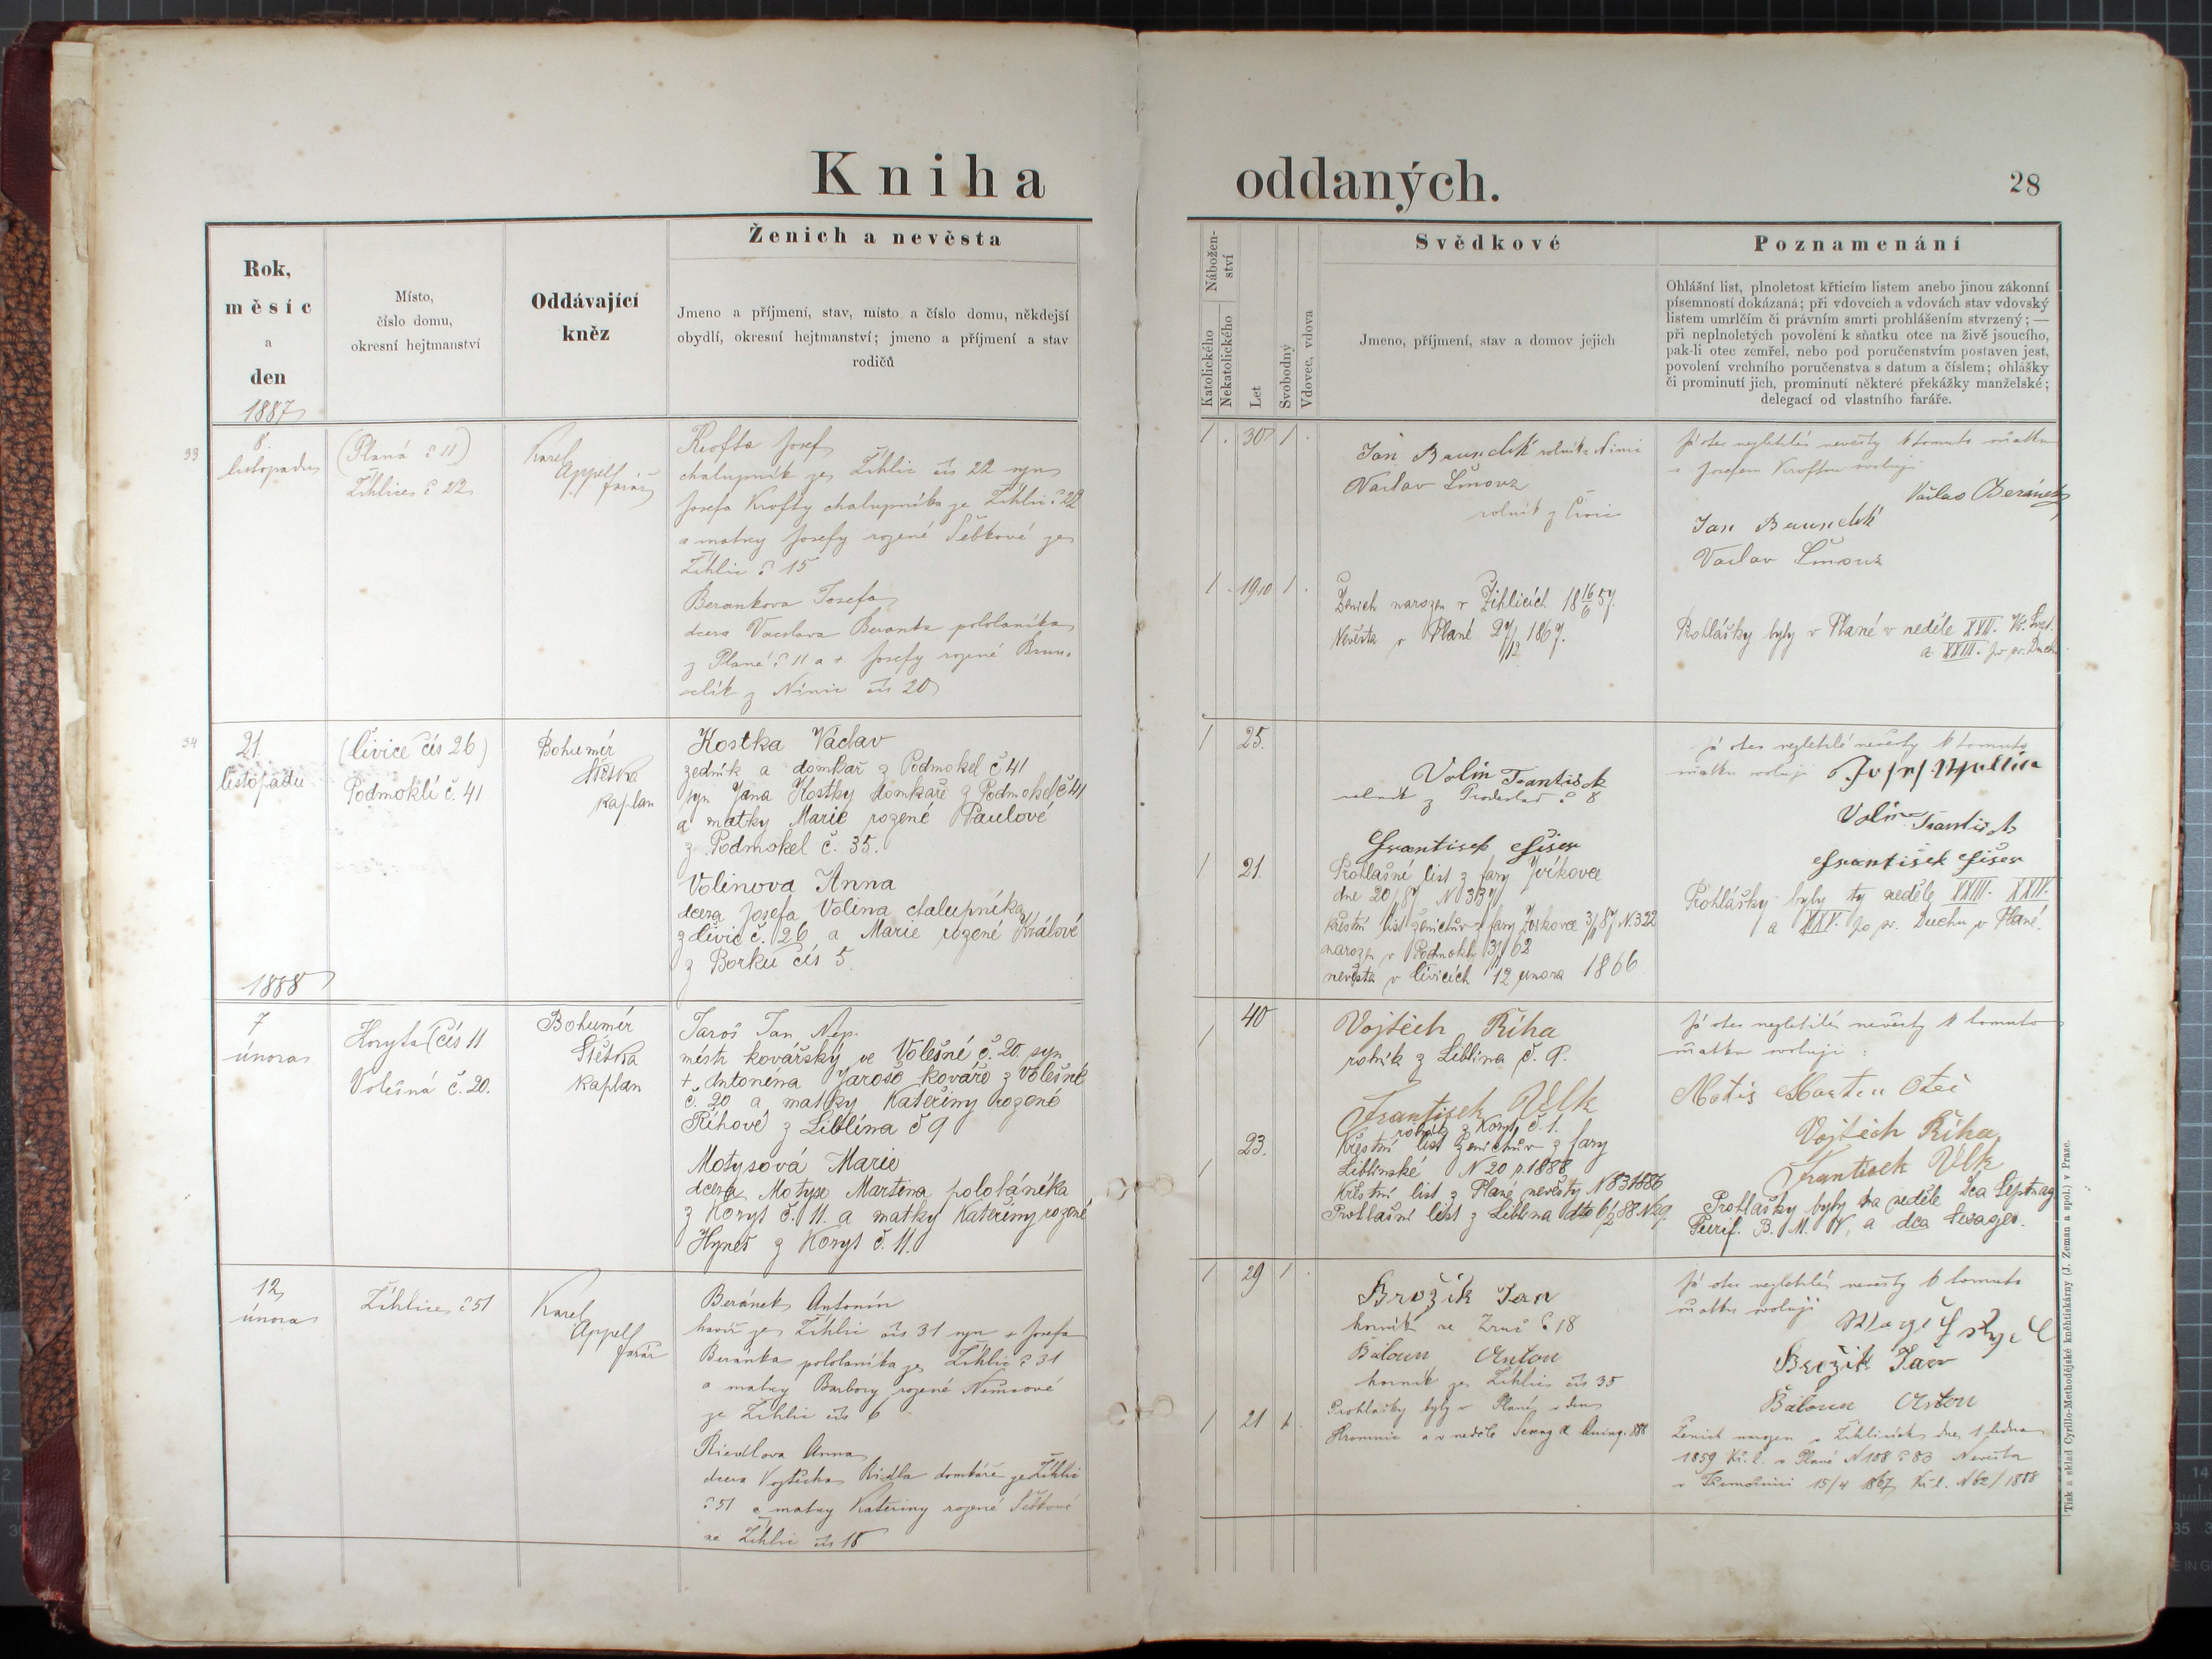 Kniha
oddaných.
28
Rok,
měsíc
a
den
1887
Místo,
číslo domu,
okresní hejtmanství
Oddávající
kněz
Ženich a nevěsta
Jmeno a příjmení, stav, místo a číslo domu, někdejší
obydlí, okresní hejtmanství; jmeno a příjmení a stav
rodičů
Nábožen-
ství
Katolického
Nekatolického
Let
Svobodný
Vdovec, vdova
Svědkové
Jmeno, příjmení, stav a domov jejich
Poznamenání
Ohlášní list, plnoletost křticím listem anebo jinou zákonní
písemností dokázaná; při vdovcích a vdovách stav vdovský
listem umrlčím či právním smrti prohlášením stvrzený; —
při neplnoletých povolení k sňatku otce na živě jsoucího,
pak-li otec zemřel, nebo pod poručenstvím postaven jest,
povolení vrchního poručenstva s datum a číslem; ohlášky
či prominutí jich, prominutí některé překážky manželské;
delegací od vlastního faráře.
33
8.
listopadu
(Planá č 11)
Žihlice č 22
Karel
Appelt
farář
Krofta Josef
chalupník ze Žihlic čís 22 syn
Josefa Krofty chalupníka ze Žihlic č 22
a matky Josefy rozené Šebkové ze
Žihlic č 15
Berankova Josefa
dcera Vacslava Beranka pololaníka
z Plané č 11 a + Josefy rozené Brun-
clík z Nínic čís 20
1 . 30 1 .
1 . 19 10 1 .
Jan Bruncklík rolník z Ninic
Vaclav Šmouz
rolník z
Ženich narozen v Žihlicích 18 16/6 57.
Nevěsta v Plané 27/12 1867.
Já otec nezletilé nevěsty k tomuto sňatku
s Josefem Kroftou svoluji
Václav Beránek
Jan Bruncklík
Vaclav Šmouz
Prohlášky byly v Plané v neděle XXII.
a XXIII. po sv. Duch.
34
21.
listopadu
(Čivice čís 26)
Podmoklí č. 41
Bohumír
Štětka
kaplan
Kostka Václav
zedník a domkař z Podmokel č 41
syn Jana Kostky domkaře z Podmokel č 41
a matky Marie rozené Paulové
z Podmokel č. 35.
Volínova Anna
dcera Josefa Volína chalupníka
z Čivic č. 26 a Marie rozené Králové
z Borku čís 5.
1 25.
1 21.
Volín František
rolník z č 8
František Fišer
Prohlašní list z fary Zvíkovce
dne 20/87 N 337
Křestní list ženichův z fary Zvíkovce 3/87 N. 322
narozen v Podmoklí 3/62
nevěsta v Čivicích 12 února 1866
já otec nezletilé nevěsty k tomuto
sňatku svoluji Josef
Volín František
František Fišer
Prohlášky byly ty neděle XXIII. XXIV.
a XXV. po sv. Duchu v Plané.
1888
7
února
Koryta čís 11
Volešná č. 20.
Bohumír
Štětka
kaplan
Jaroš Jan Nep.
mistr kovářský ve Volešné č. 20. syn
+ Antonína Jaroše kováře z Volešné
č. 20 a matky Kateřiny rozené
Říhové z Liblína č 9
Motysová Marie
dcera Motyse Martina pololáníka
z Koryt č. 11. a matky Kateřiny rozené
Hyneš z Koryt č. 11.
1 40
1 23.
Vojtěch Říha
rolník z Liblína č. 9.
František Vlk
rolník z Koryt č. 1.
Křestní list ženichův z fary
Liblínské N 20 p. 1888
Křestní list z Plané nevěsty N 83 1886
Prohlašní list z Liblína dto 6/2 88 N 29.
Já otec nezletilé nevěsty k tomuto
sňatku svoluji :
Motis Martin Otec
Vojtěch Říha
František Vlk
Prohlášky byly na neděle Dca Septuag
Purif. B. M. V. a dca Sexages.
12
února
Žihlice č 51
Karel
Appelt
farář
Beránek Antonín
havíř ze Žihlic čís 31 syn + Josefa
Beránka pololaníka ze Žihlic č 31
a matky Barbory rozené Němcové
ze Žihlic čís 6
Riedlova Anna
dcera Vojtěcha Ridla domkáře ze Žihlic
č 51 a matky Kateřiny rozené Šebkové
ze Žihlic čís 15
1 29 1 .
1 21 1
Brožik Jan
horník ze Zruč č 18
Baloun Anton
horník ze Žihlic čís 35
Prohlašky byly v Plané v den
Hromnic a v neděle Sexag a Quinq. 888
Já otec nezletilé nevěsty k tomuto
sňatku svoluji
Brožik Jan
Baloun Anton
Ženich narozen v Žihlicích dne 1 ledna
1859 Kř. l. v Plané N 108 č 80 Nevěsta
v Třemošnici 15/4 1867 Kř. l. N 62/1888
Tisk a sklad Cyrillo-Methodějské kněhtiskárny (J. Zeman a spol.) v Praze.